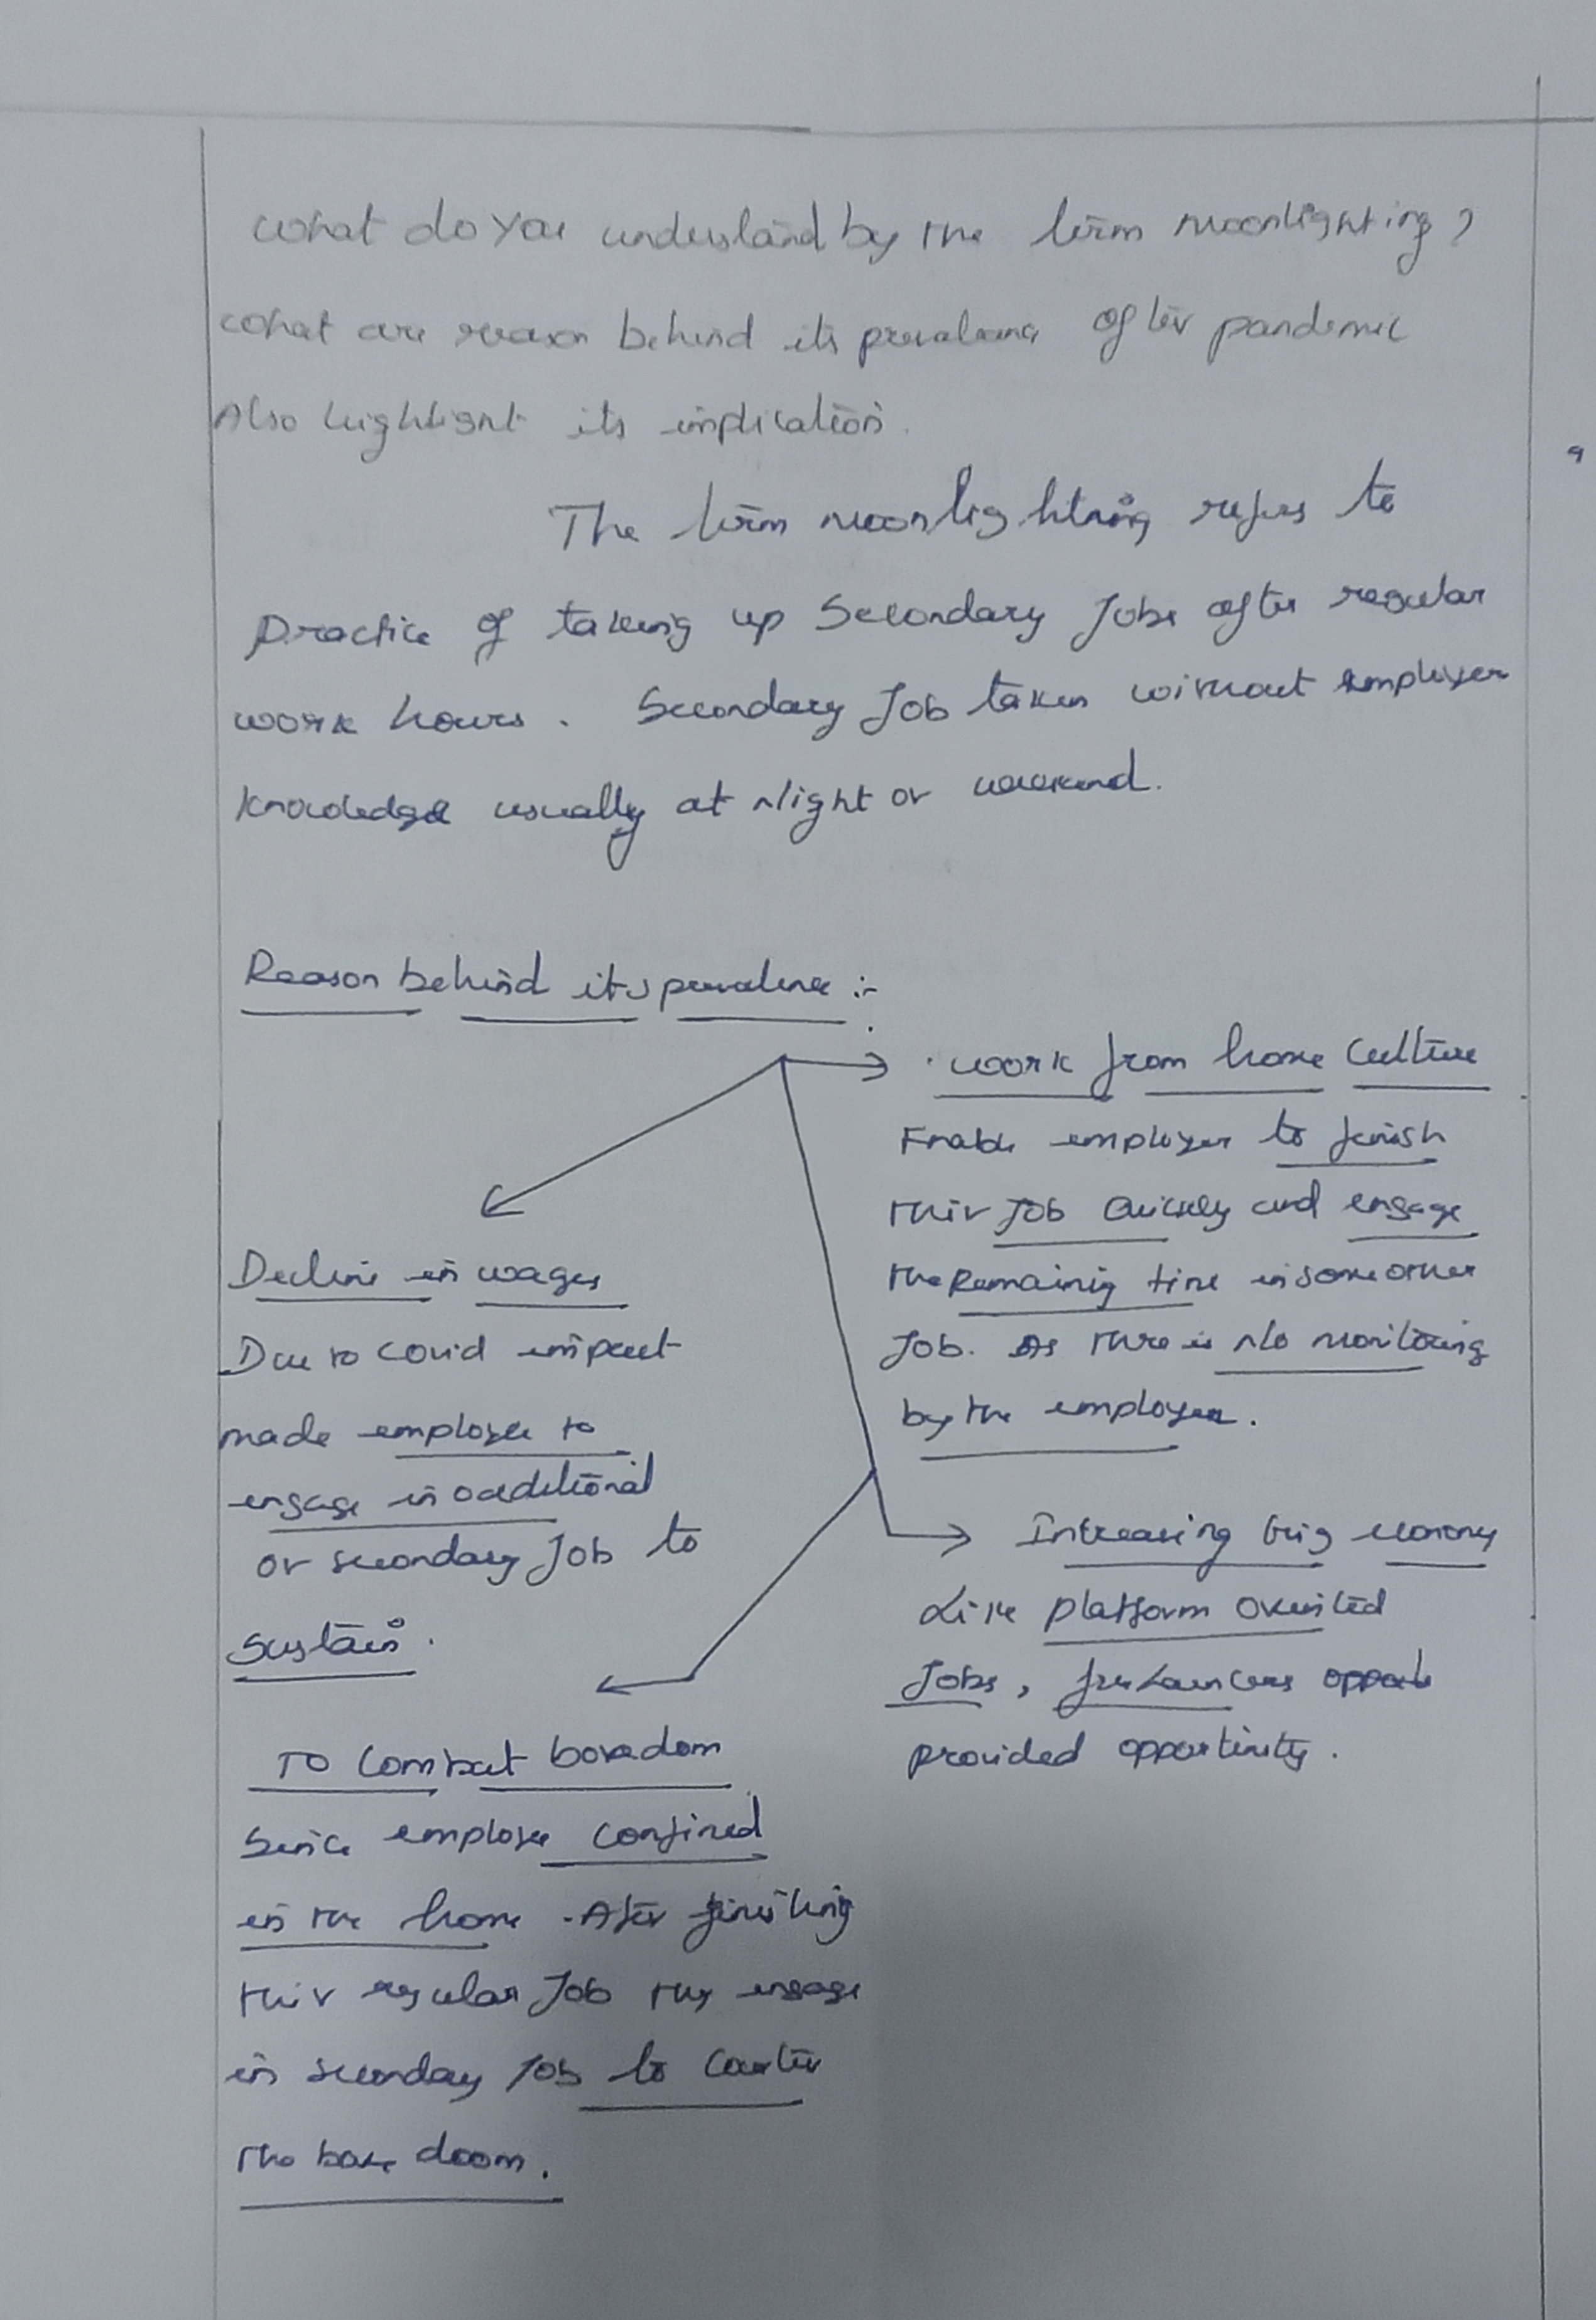 What do you understand by the term moonlighting?
What are reason behind its prevalence after pandemic
Also highlight its implication.
The term moonlighting refers to
practice of taking up Secondary Jobs after regular
work hours. Secondary Job taken without employer
knowledge usually at Night or weekend.
Reason behind its prevalence :-
Decline in wages
Due to covid impact
made employee to
engage in additional
or secondary Job to
Sustain.
work from home Culture
Enable employer to finish
their Job Quickly and engage
the Remaining time in some other
Job. As there is No monitoring
by the employer.
Increasing Gig economy
Like platform Oriented
Jobs, freelancers
provided opportunity.
TO Combat boredom
Since employee confined
in the home. After finishing
their regular Job they engage
in secondary Job to Counter
the bore doom.